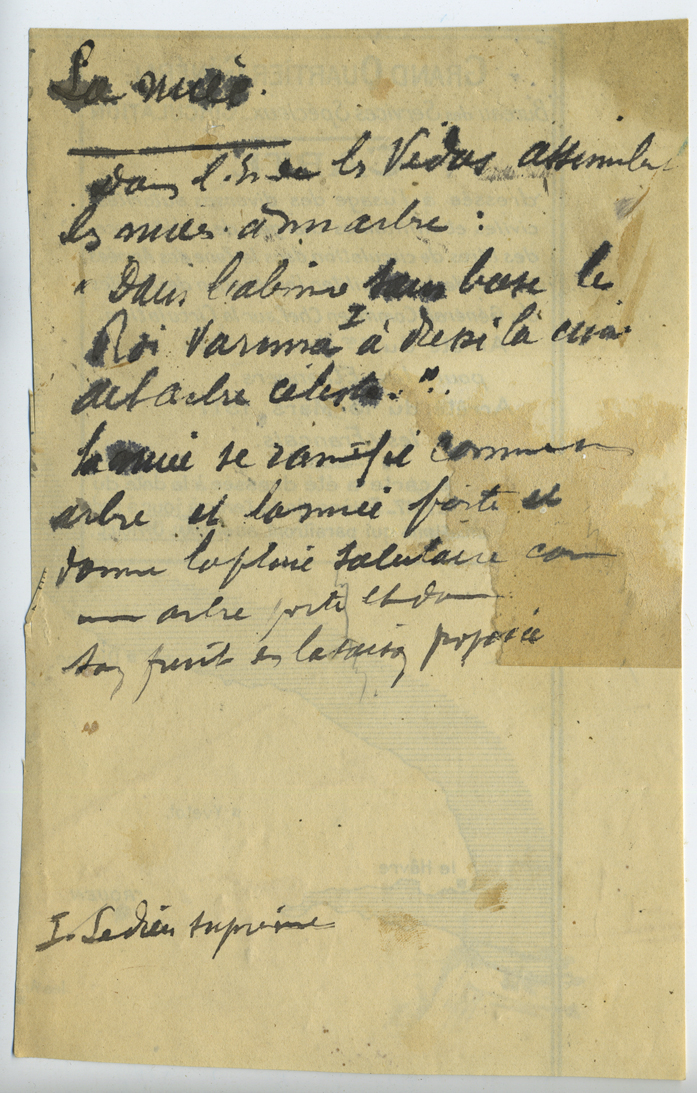 La nuée.
dans l'Inde les Védas assimilent
les nuées à un arbre :
" Dans l'abîme sans base le
Roi Varuna I à dressé là cime
de l'arbre céleste. ".
la nuée se ramifie comme un
arbre et la nuée porte et
donne la pluie salutaire com
un arbre porte et donne
son fruit en la saison propice
I. Le dieu suprême